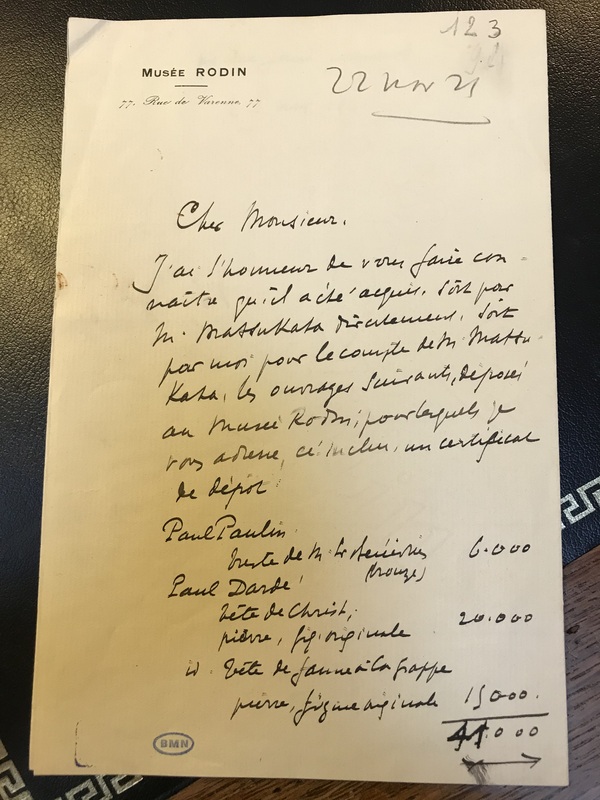 123
MUSÉE RODIN
77, Rue de Varenne, 77
22 nov 21
Cher Monsieur.
J'ai l'honneur de vous faire con-
naître qu'il a été acquis, soit par
M. Matsukata directement, soit
par moi pour le compte de M. Matsu-
kata, les ouvrages suivants, déposés
au Musée Rodin, pour lesquels je
vous adresse, ci-inclus, un certificat
de dépôt
Paul Paulin
buste de M.
(bronze) 6.000
Paul Dardé
tête de Christ,
pierre, fig. originale 20.000
id. tête de faune à la grappe
pierre, figure originale 15000.
41.000
BMN